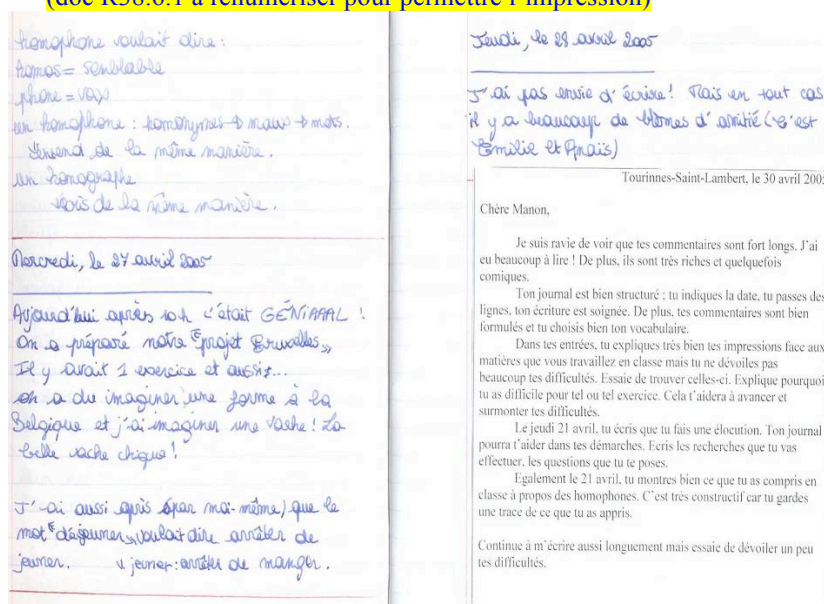 (doc R38.6.1 à renumériser pour permettre l'impression)
homophone voulait dire :
homos = semblable
phone = voix
un homophone : homonymes → maux → mots.
s'entend de la même manière.
un homographe
vois de la même manière.
Mercredi, le 27 avril 2005
Aujourd'hui après 10h c'était GÉNIAAAL !
On a préparé notre "projet Bruxelles"
Il y avait 1 exercice et aussi...
on a du imaginer une forme à la
Belgique et j'ai imaginer une vache ! La
belle vache chique !
J'ai aussi apris (par moi-même) que le
mot "déjeuner" voulait dire arrêter de
jeuner. ↓ jeuner : arrêter de manger.
Jeudi, le 28 avril 2005
J'ai pas envie d'écrire ! Mais en tout cas
il y a beaucoup de blèmes d'amitié (C'est
Emilie et Anaïs)
Tourinnes-Saint-Lambert, le 30 avril 2005
Chère Manon,
Je suis ravie de voir que tes commentaires sont fort longs. J'ai
eu beaucoup à lire ! De plus, ils sont très riches et quelquefois
comiques.
Ton journal est bien structuré : tu indiques la date, tu passes des
lignes, ton écriture est soignée. De plus, tes commentaires sont bien
formulés et tu choisis bien ton vocabulaire.
Dans tes entrées, tu expliques très bien tes impressions face aux
matières que vous travaillez en classe mais tu ne dévoiles pas
beaucoup tes difficultés. Essaie de trouver celles-ci. Explique pourquoi
tu as difficile pour tel ou tel exercice. Cela t'aidera à avancer et
surmonter tes difficultés.
Le jeudi 21 avril, tu écris que tu fais une élocution. Ton journal
pourra t'aider dans tes démarches. Ecris les recherches que tu vas
effectuer, les questions que tu te poses.
Egalement le 21 avril, tu montres bien ce que tu as compris en
classe à propos des homophones. C'est très constructif car tu gardes
une trace de ce que tu as appris.
Continue à m'écrire aussi longuement mais essaie de dévoiler un peu
tes difficultés.